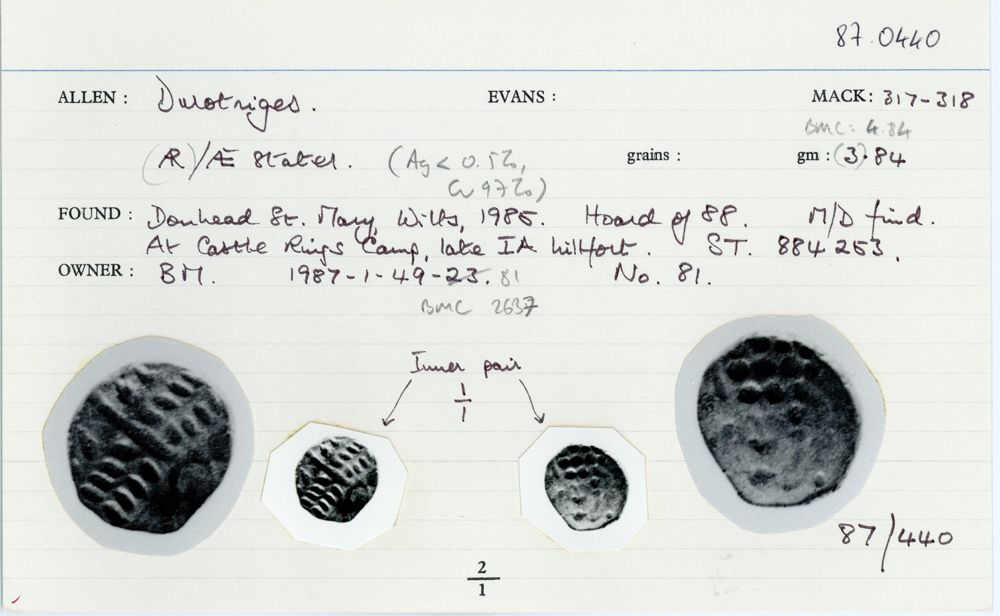 87.0440
ALLEN : Durotriges. EVANS : MACK: 317-318
BMC: 4.84
(AR)/Æ Stater. (Ag < 0.5%, grains : gm : (3).84
Cu 97%)
FOUND : Donhead St. Mary, Wilts, 1985. Hoard of 88. M/D find.
At Castle Rings Camp, late IA hillfort. ST. 884253.
OWNER : BM. 1987-1-49-23. 81 No. 81.
BMC 2637
Inner pair
1
1
87/440
2
1